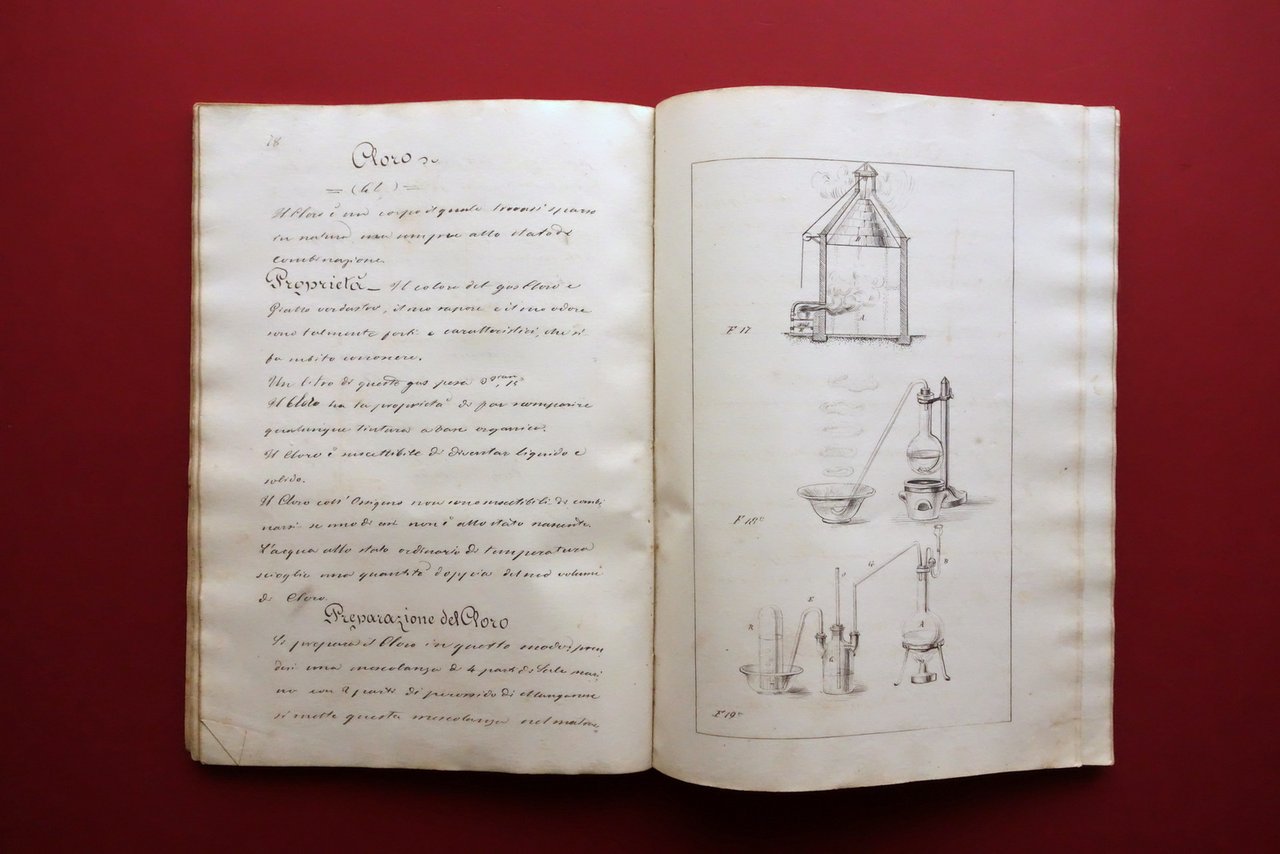 78
Cloro
= (Cl.) =
Il Cloro è un corpo il quale trovasi sparso
in natura ma sempre allo stato di
combinazione.
Proprietà _ Il colore del gas Cloro è
giallo verdastro, il suo sapore e il suo odore
sono talmente forti e caratteristici, che si
fa subito conoscere.
Un litro di questo gas pesa 3 gram
Il Cloro ha la proprietà di far scomparire
qualunque tintura a base organica.
Il Cloro è suscettibile di diventar liquido e
solido.
Il Cloro coll' Ossigeno non sono suscettibili di combi
narsi se uno di essi non è allo stato nascente.
L'acqua allo stato ordinario di temperatura
scioglie una quantità doppia del suo volume
di Cloro.
Preparazione del Cloro
Si prepara il Cloro in questo modo; pren
desi una mescolanza di 4 parti di Sale mari
no con 2 parti di perossido di Manganese
si mette questa mescolanza nel
B
A
F 17
F 18ª
B
G
O
E
R
A
C
H
F 19ª